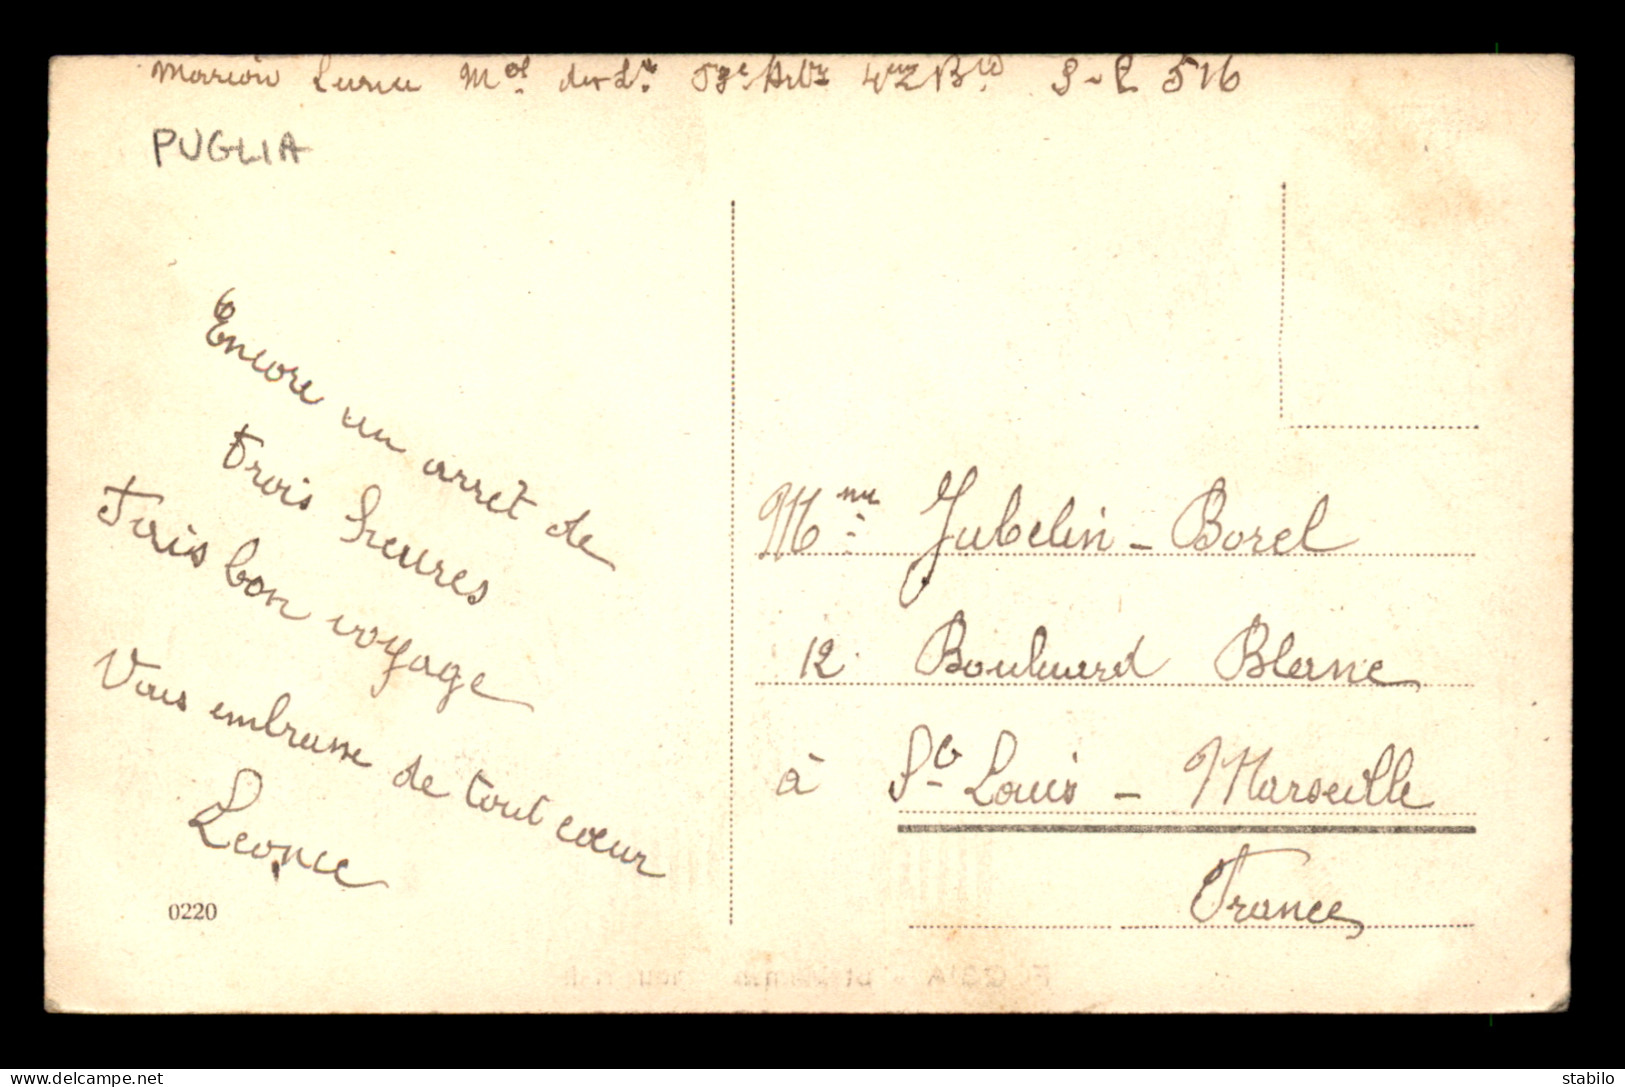 Marion M^al des L^is 58e Art^ie 42 B^ie S-P. 516
PUGLIA
Encore un arrêt de
trois heures
Fais bon voyage
Vous embrasse de tout cœur
Leonce
0220
M^me Jubelin - Borel
12 Boulevard Blanc
à S^t Louis - Marseille
France
www.delcampe.net
stabilo